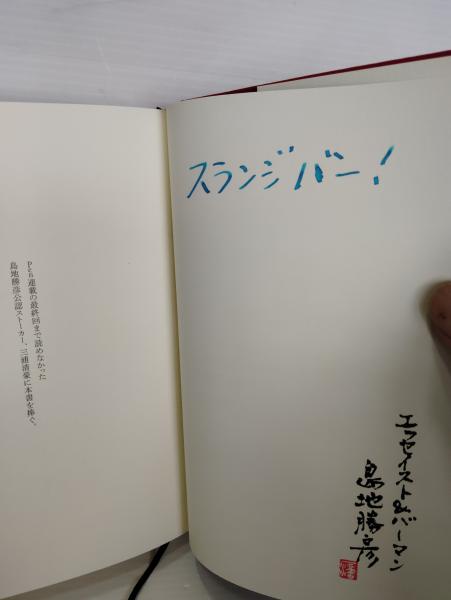 Pen連載の最終回まで読めなかった
島地勝彦公認ストーカー、三浦清豪に本書を捧ぐ。
スランジバー!
エッセイスト&バーマン
島地勝彦